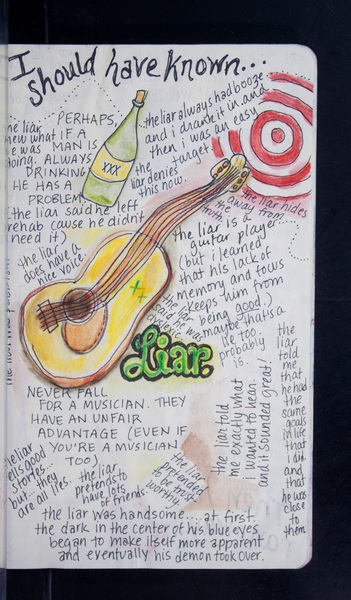 I should have known...
the liar always had booze
and i drank it in and
then i was an easy
target
the
liar denies
this now.
he liar
knew what
he was
doing. ALWAYS
PERHAPS,
IF A
MAN IS
DRINKING
HE HAS A
PROBLEM
(the liar said he left
rehab cause he didn't
need it)
XXX
the liar hides
away from
the
truth.
the liar
does have a
nice voice.
the liar is a
guitar player
(but i learned
that his lack of
memory and focus
keeps him from
being good.)
the liar
said he was
maybe that's a
lie too.
probably
is.
Liar.
NEVER FALL
FOR A MUSICIAN. THEY
HAVE AN UNFAIR
ADVANTAGE (EVEN IF
YOU'RE A MUSICIAN
TOO)
the liar
tells good
stories...
but they
are all lies.
the liar
pretends to
have lots
of friends.
the liar
pretended
to be trust
worthy.
the liar told
me exactly what
i wanted to hear.
and it sounded great!
the
liar
told
me
that
he had
the
same
goals
in life
that
i did
and
that he
was
close
to
them
the liar was handsome.... at first.
the dark in the center of his blue eyes
began to make itself more apparent
and eventually his demon took over.